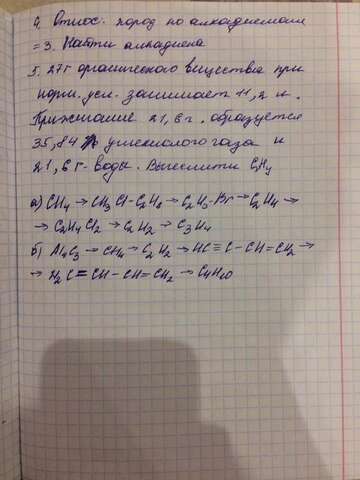 4. Относ. пород по алкадиенами
= 3. Найти алкадиена
5. 27 г органического вещества при
норм. усл. занимает 11,2 л.
При сжигание 21,6 г. образуется
35,84 углекислого газа и
21,6 г воды. Вычислити CxHy
а) CH4 → CH3Cl - C2H6 → C2H5-Br → C2H4 →
→ C2H4Cl2 → C2H2 → C3H4
б) Al4C3 → CH4 → C2H2 → HC≡C-CH=CH2 →
→ H2C=CH-CH=CH2 → C4H10